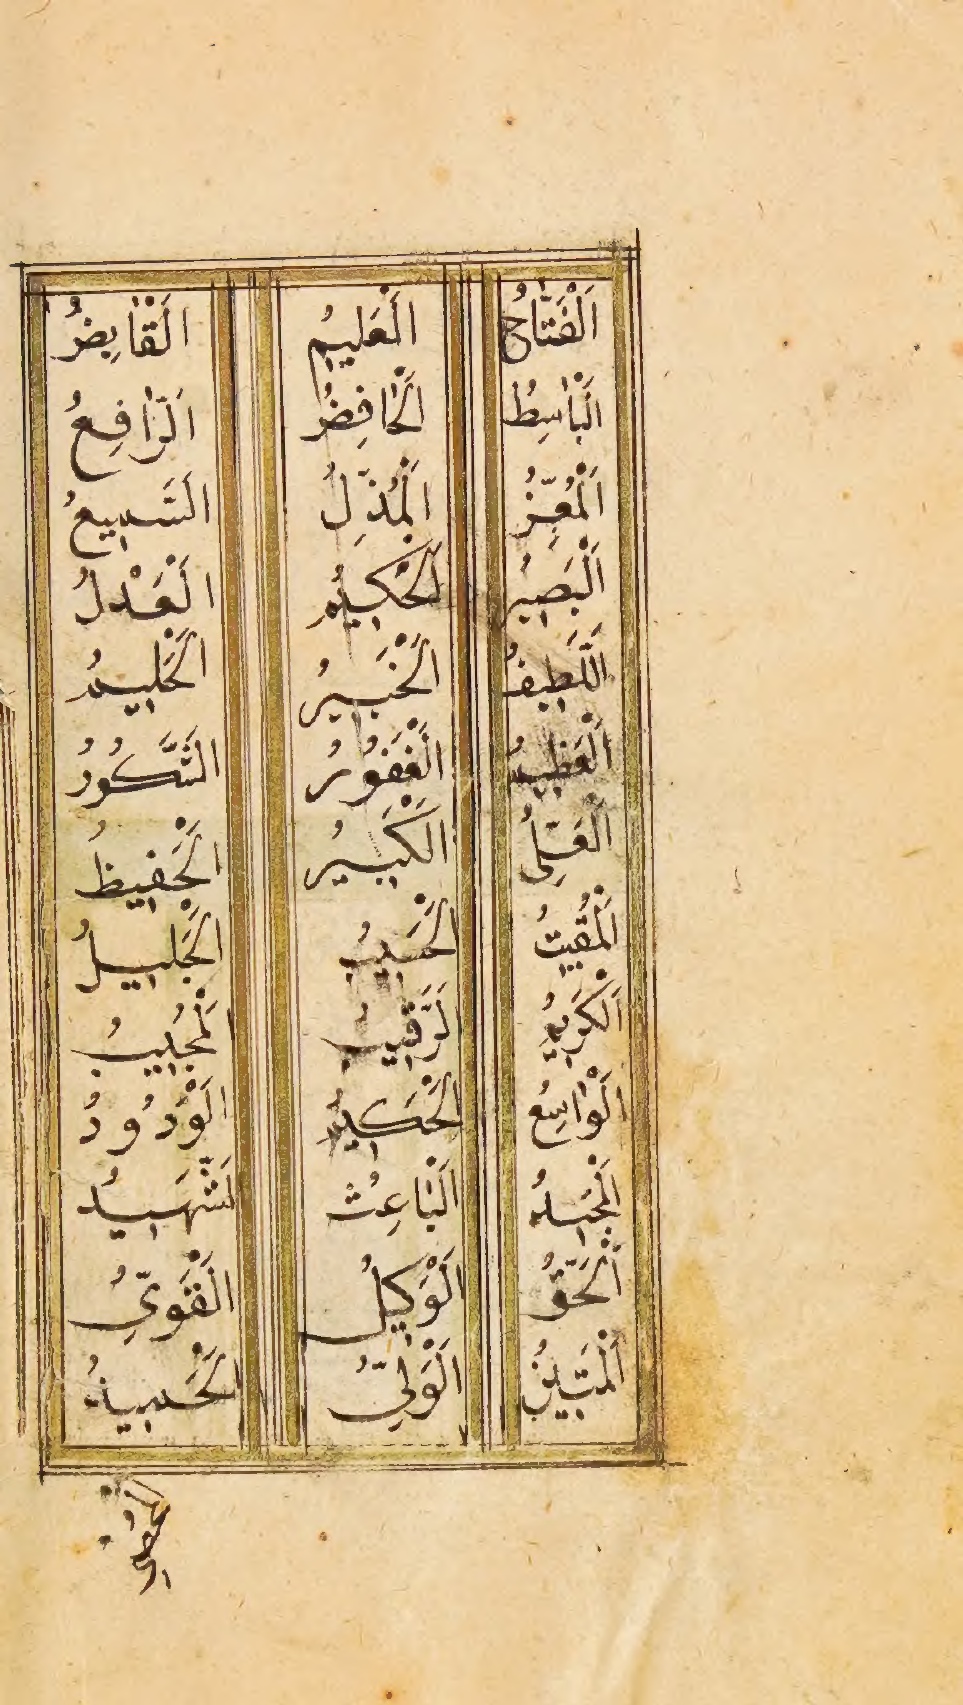 اَلْفَتَّاحُ اَلْعَلِيمُ اَلْقَابِضُ
اَلْبَاسِطُ اَلْخَافِضُ اَلرَّافِعُ
اَلْمُعِزُّ اَلْمُذِلُّ اَلسَّمِيعُ
اَلْبَصِيرُ اَلْحَكِيمُ اَلْعَدْلُ
اَللَّطِيفُ اَلْخَبِيرُ اَلْحَلِيمُ
اَلْعَظِيمُ اَلْغَفُورُ اَلشَّكُورُ
اَلْعَلِىُّ اَلْكَبِيرُ اَلْحَفِيظُ
اَلْمُقِيتُ اَلْحَسِيبُ اَلْجَلِيلُ
اَلْكَرِيمُ اَلرَّقِيبُ اَلْمُجِيبُ
اَلْوَاسِعُ اَلْحَكِيمُ اَلْوَدُودُ
اَلْمَجِيدُ اَلْبَاعِثُ اَلشَّهِيدُ
اَلْحَقُّ اَلْوَكِيلُ اَلْقَوِىُّ
اَلْمَتِينُ اَلْوَلِىُّ اَلْحَمِيدُ